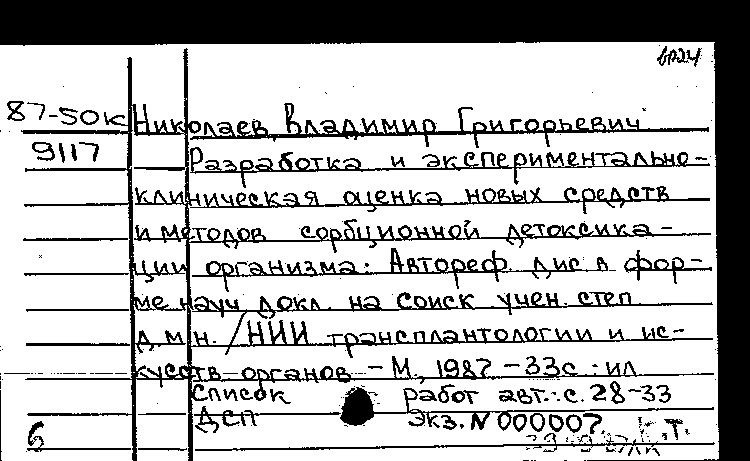 87-50к Николаев, Владимир Григорьевич
9117 Разработка и экспериментально-
клиническая оценка новых средств
и методов сорбционной детоксика-
ции организма: Автореф. дис в фор-
ме науч докл. на соиск учен. степ
д.м.н. /НИИ трансплантологии и ис-
кусств. органов - М., 1987 - 33с.: ил
Список работ авт.: с. 28-33
ДСП экз. N 000007
б К.Т.